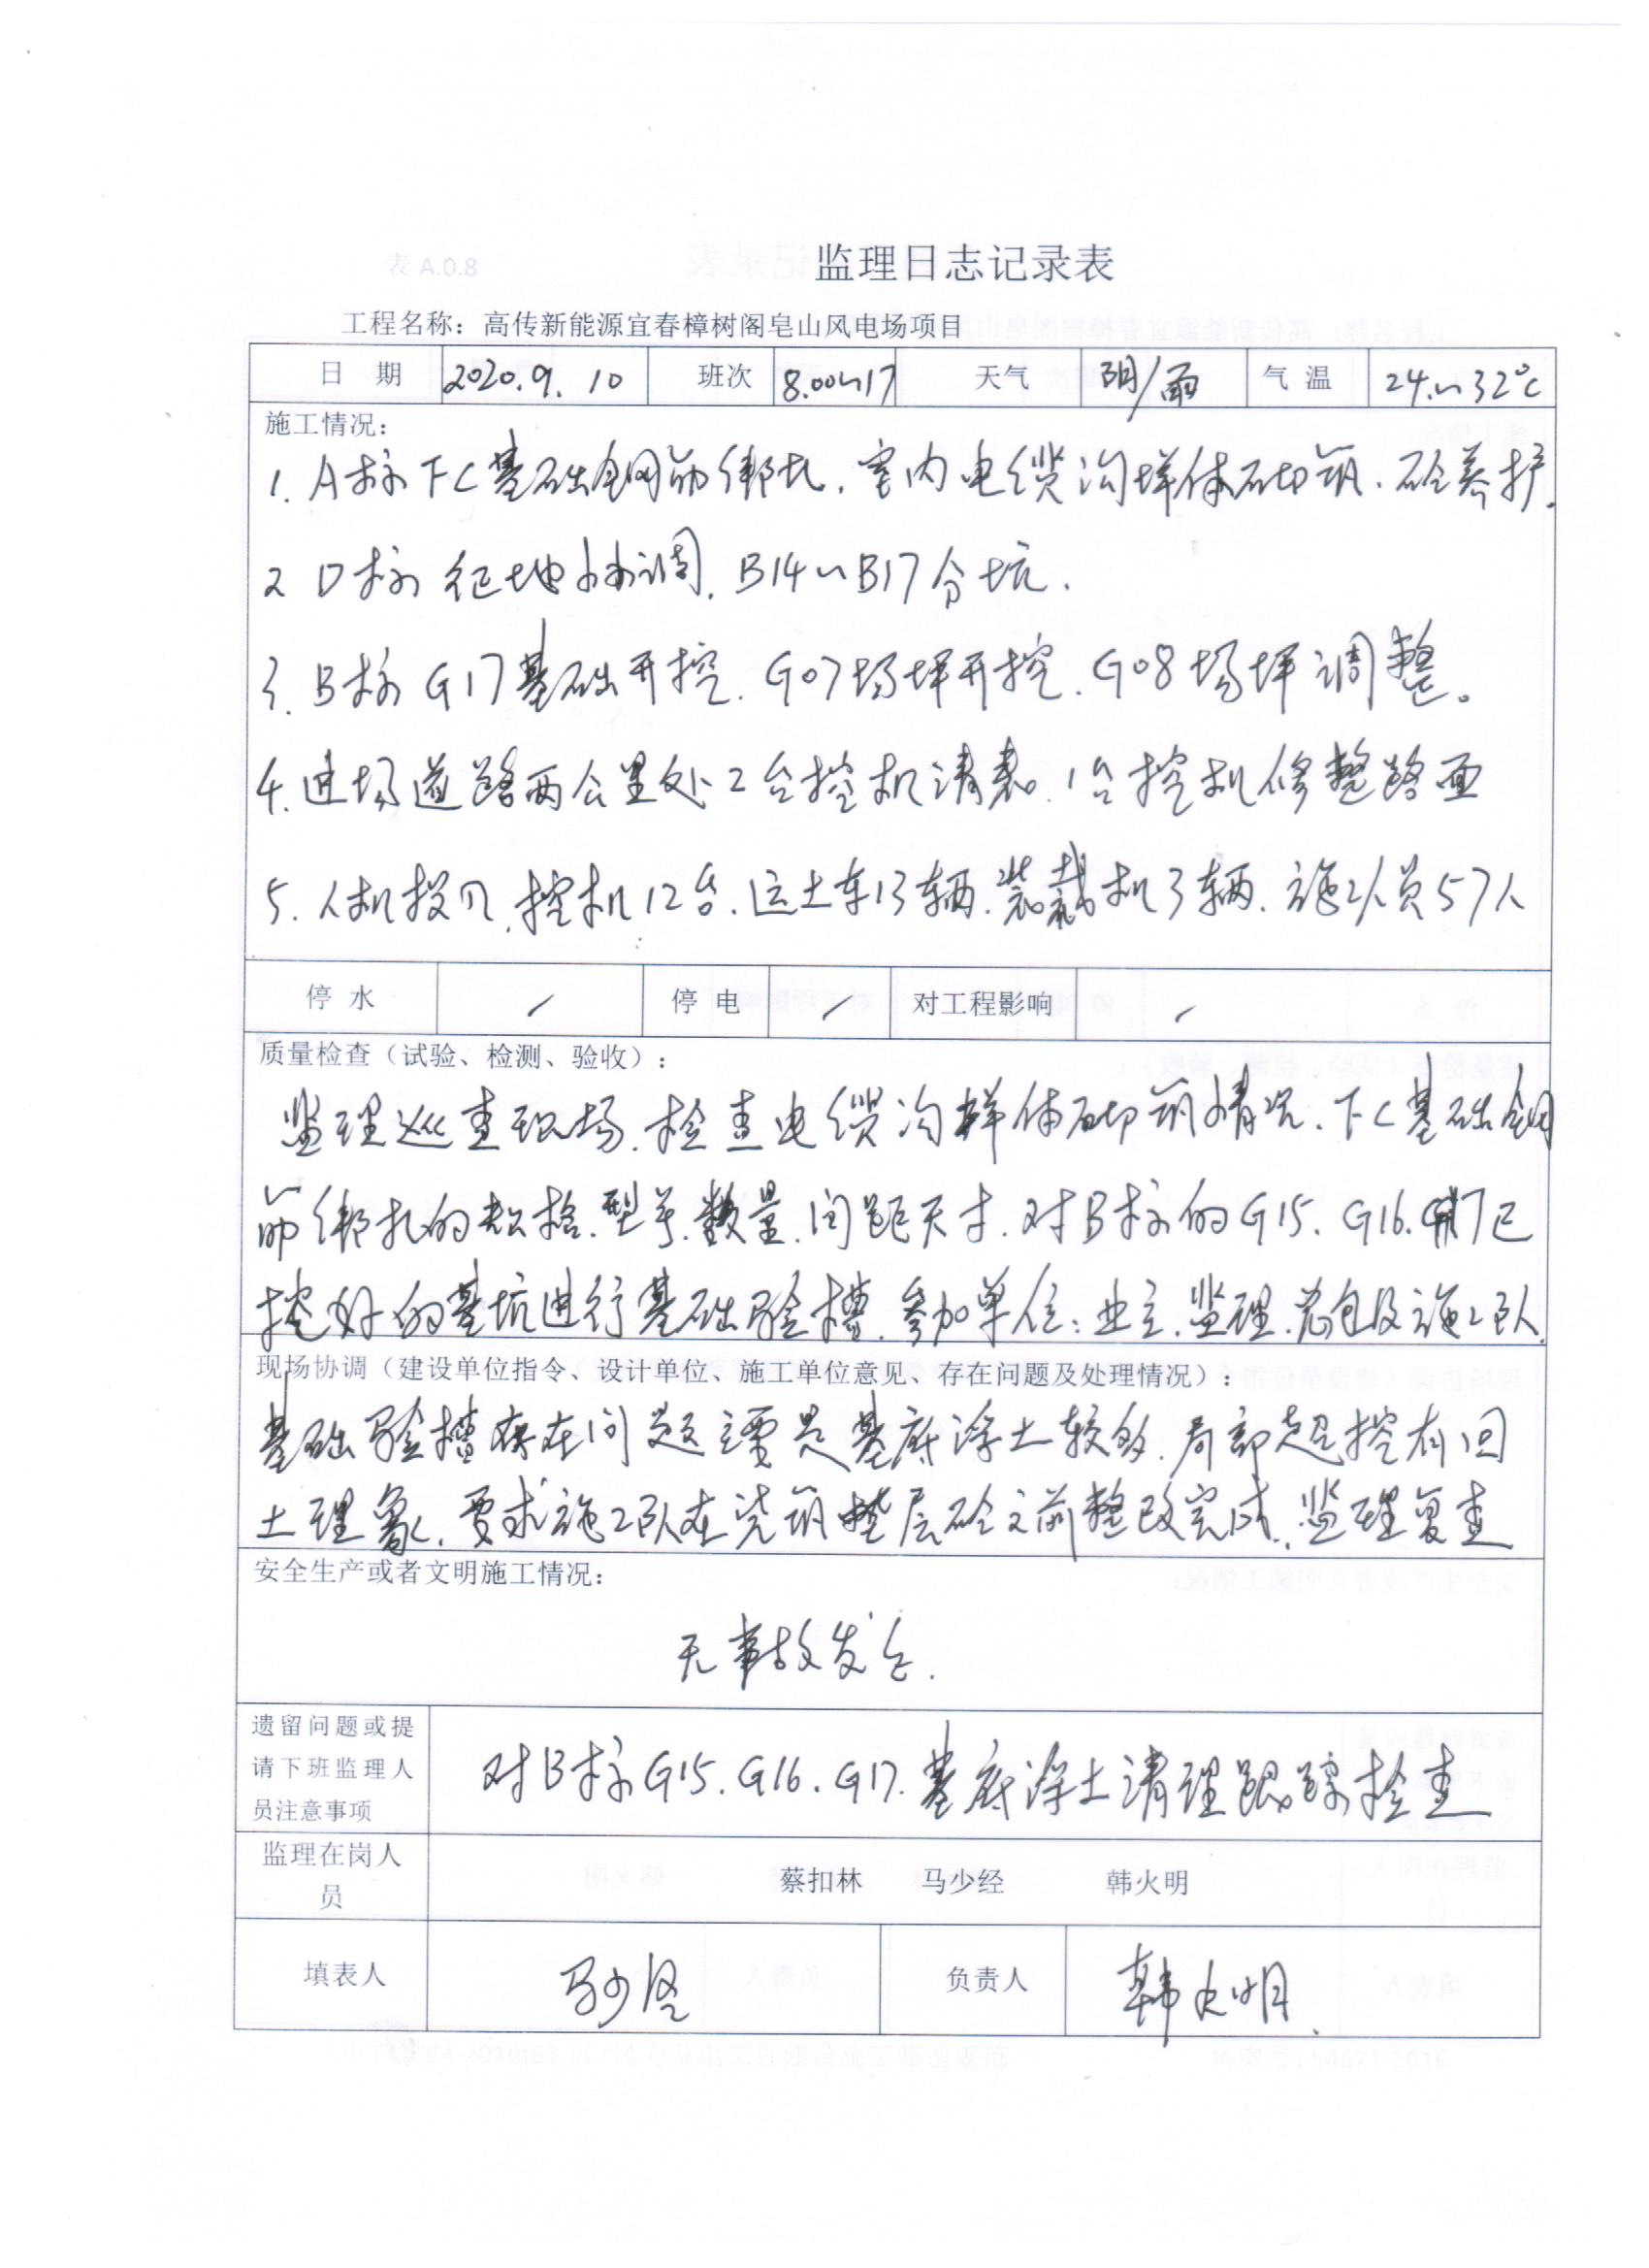 表 A.0.8
监理日志记录表
工程名称：高传新能源宜春樟树阁皂山风电场项目
日 期 2020.9.10 班次 8.00~17 天气 阴/雨 气 温 24~32℃
施工情况：
1. A标 FC基础钢筋绑扎. 室内电缆沟墙体砌筑. 砼养护.
2 D标 征地协调. B14~B17分坑.
3. B标 G17基础开挖. G07场坪开挖. G08场坪调整。
4. 进场道路两公里处2台挖机清表. 1台挖机修整路面
5. 人机投入. 挖机12台. 运土车13辆. 装载机3辆. 施工人员57人
停 水 / 停 电 / 对工程影响 /
质量检查（试验、检测、验收）：
监理巡查现场. 检查电缆沟墙体砌筑情况. FC基础钢
筋绑扎的规格. 型号. 数量. 间距尺寸. 对B标的G15. G16. G17已
挖好的基坑进行基础验槽. 参加单位：业主. 监理. 总包及施工队.
现场协调（建设单位指令、设计单位、施工单位意见、存在问题及处理情况）：
基础验槽存在问题主要是基底浮土较多. 局部超挖有回
土现象. 要求施工队在浇筑垫层砼之前整改完成. 监理复查
安全生产或者文明施工情况：
无事故发生.
遗留问题或提
请下班监理人
员注意事项
对B标G15. G16. G17. 基底浮土清理跟踪检查
监理在岗人
员
蔡扣林 马少经 韩火明
填表人 马少经 负责人 韩火明.